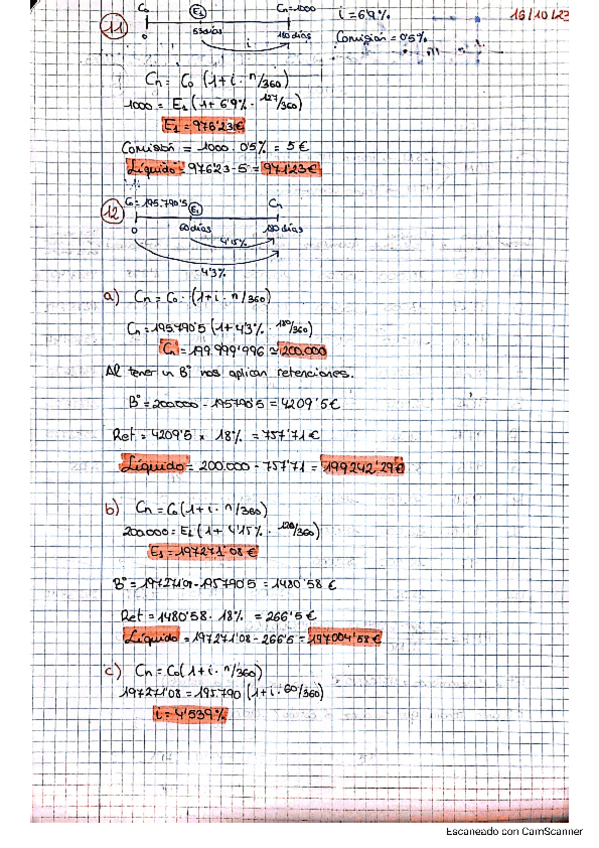 C₀ E₁ Cn=1000 i=6'9% 16/10/23
11 0 53 días 180 días Comisión = 0'5%
i
Cn = C₀ (1+i · n/360)
1000 = E₁ (1+6'9% · 127/360)
E₁ = 976'23€
Comisión = 1000 · 0'5% = 5€
Líquido = 976'23-5 = 971'23€
12 C₀=195.790'5 E₁ Cn
0 60 días 180 días
4'15%
4'3%
a) Cn = C₀ · (1+i · n/360)
Cn = 195.790'5 (1+4'3% · 180/360)
Cn = 199.999'996 ≃ 200.000
Al tener un Bº nos aplican retenciones.
Bº = 200.000 - 195790'5 = 4209'5€
Ret = 4209'5 x 18% = 757'71€
Líquido = 200.000 - 757'71 = 199242'29€
b) Cn = C₀ (1+i · n/360)
200.000 = E₁ (1+4'15% · 120/360)
E₁ = 197271'08€
Bº = 197271'08-195790'5 = 1480'58€
Ret = 1480'58 · 18% = 266'5€
Líquido = 197271'08 - 266'5 = 197004'58€
c) Cn = C₀ (1+i · n/360)
197271'08 = 195.790 (1+i · 60/360)
i = 4'539%
Escaneado con CamScanner